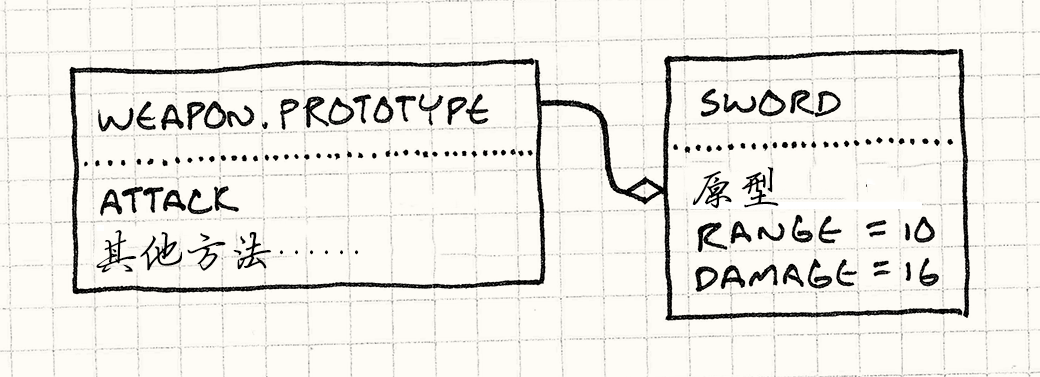 WEAPON.PROTOTYPE
ATTACK
其他方法……
SWORD
原型
RANGE = 10
DAMAGE = 16